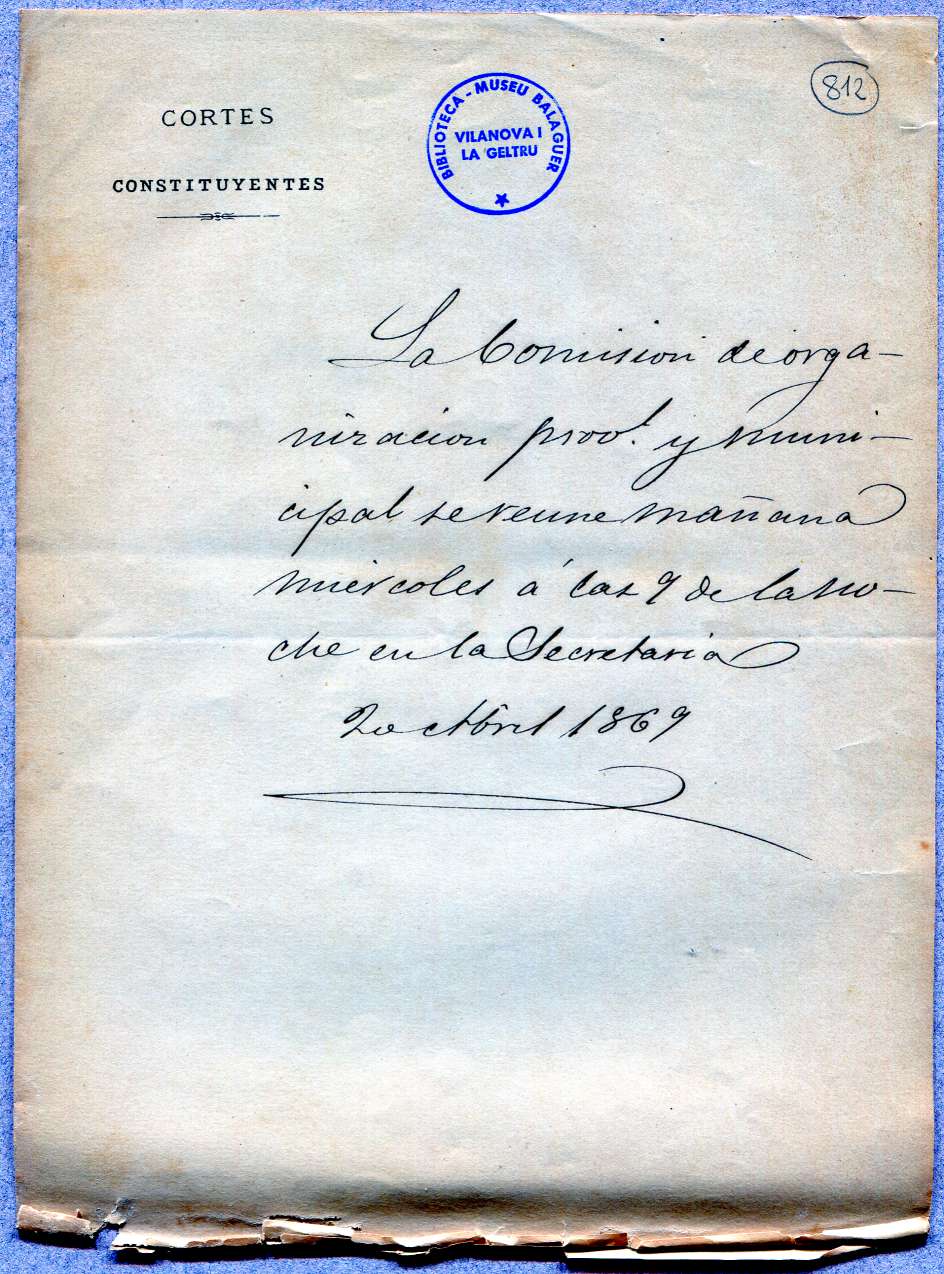 CORTES
CONSTITUYENTES
BIBLIOTECA - MUSEU BALAGUER
VILANOVA I
LA GELTRU
812
La Comision de orga-
nizacion provl. y muni-
cipal se reune mañana
miercoles á las 9 de la no-
che en la Secretaria
20 Abril 1869